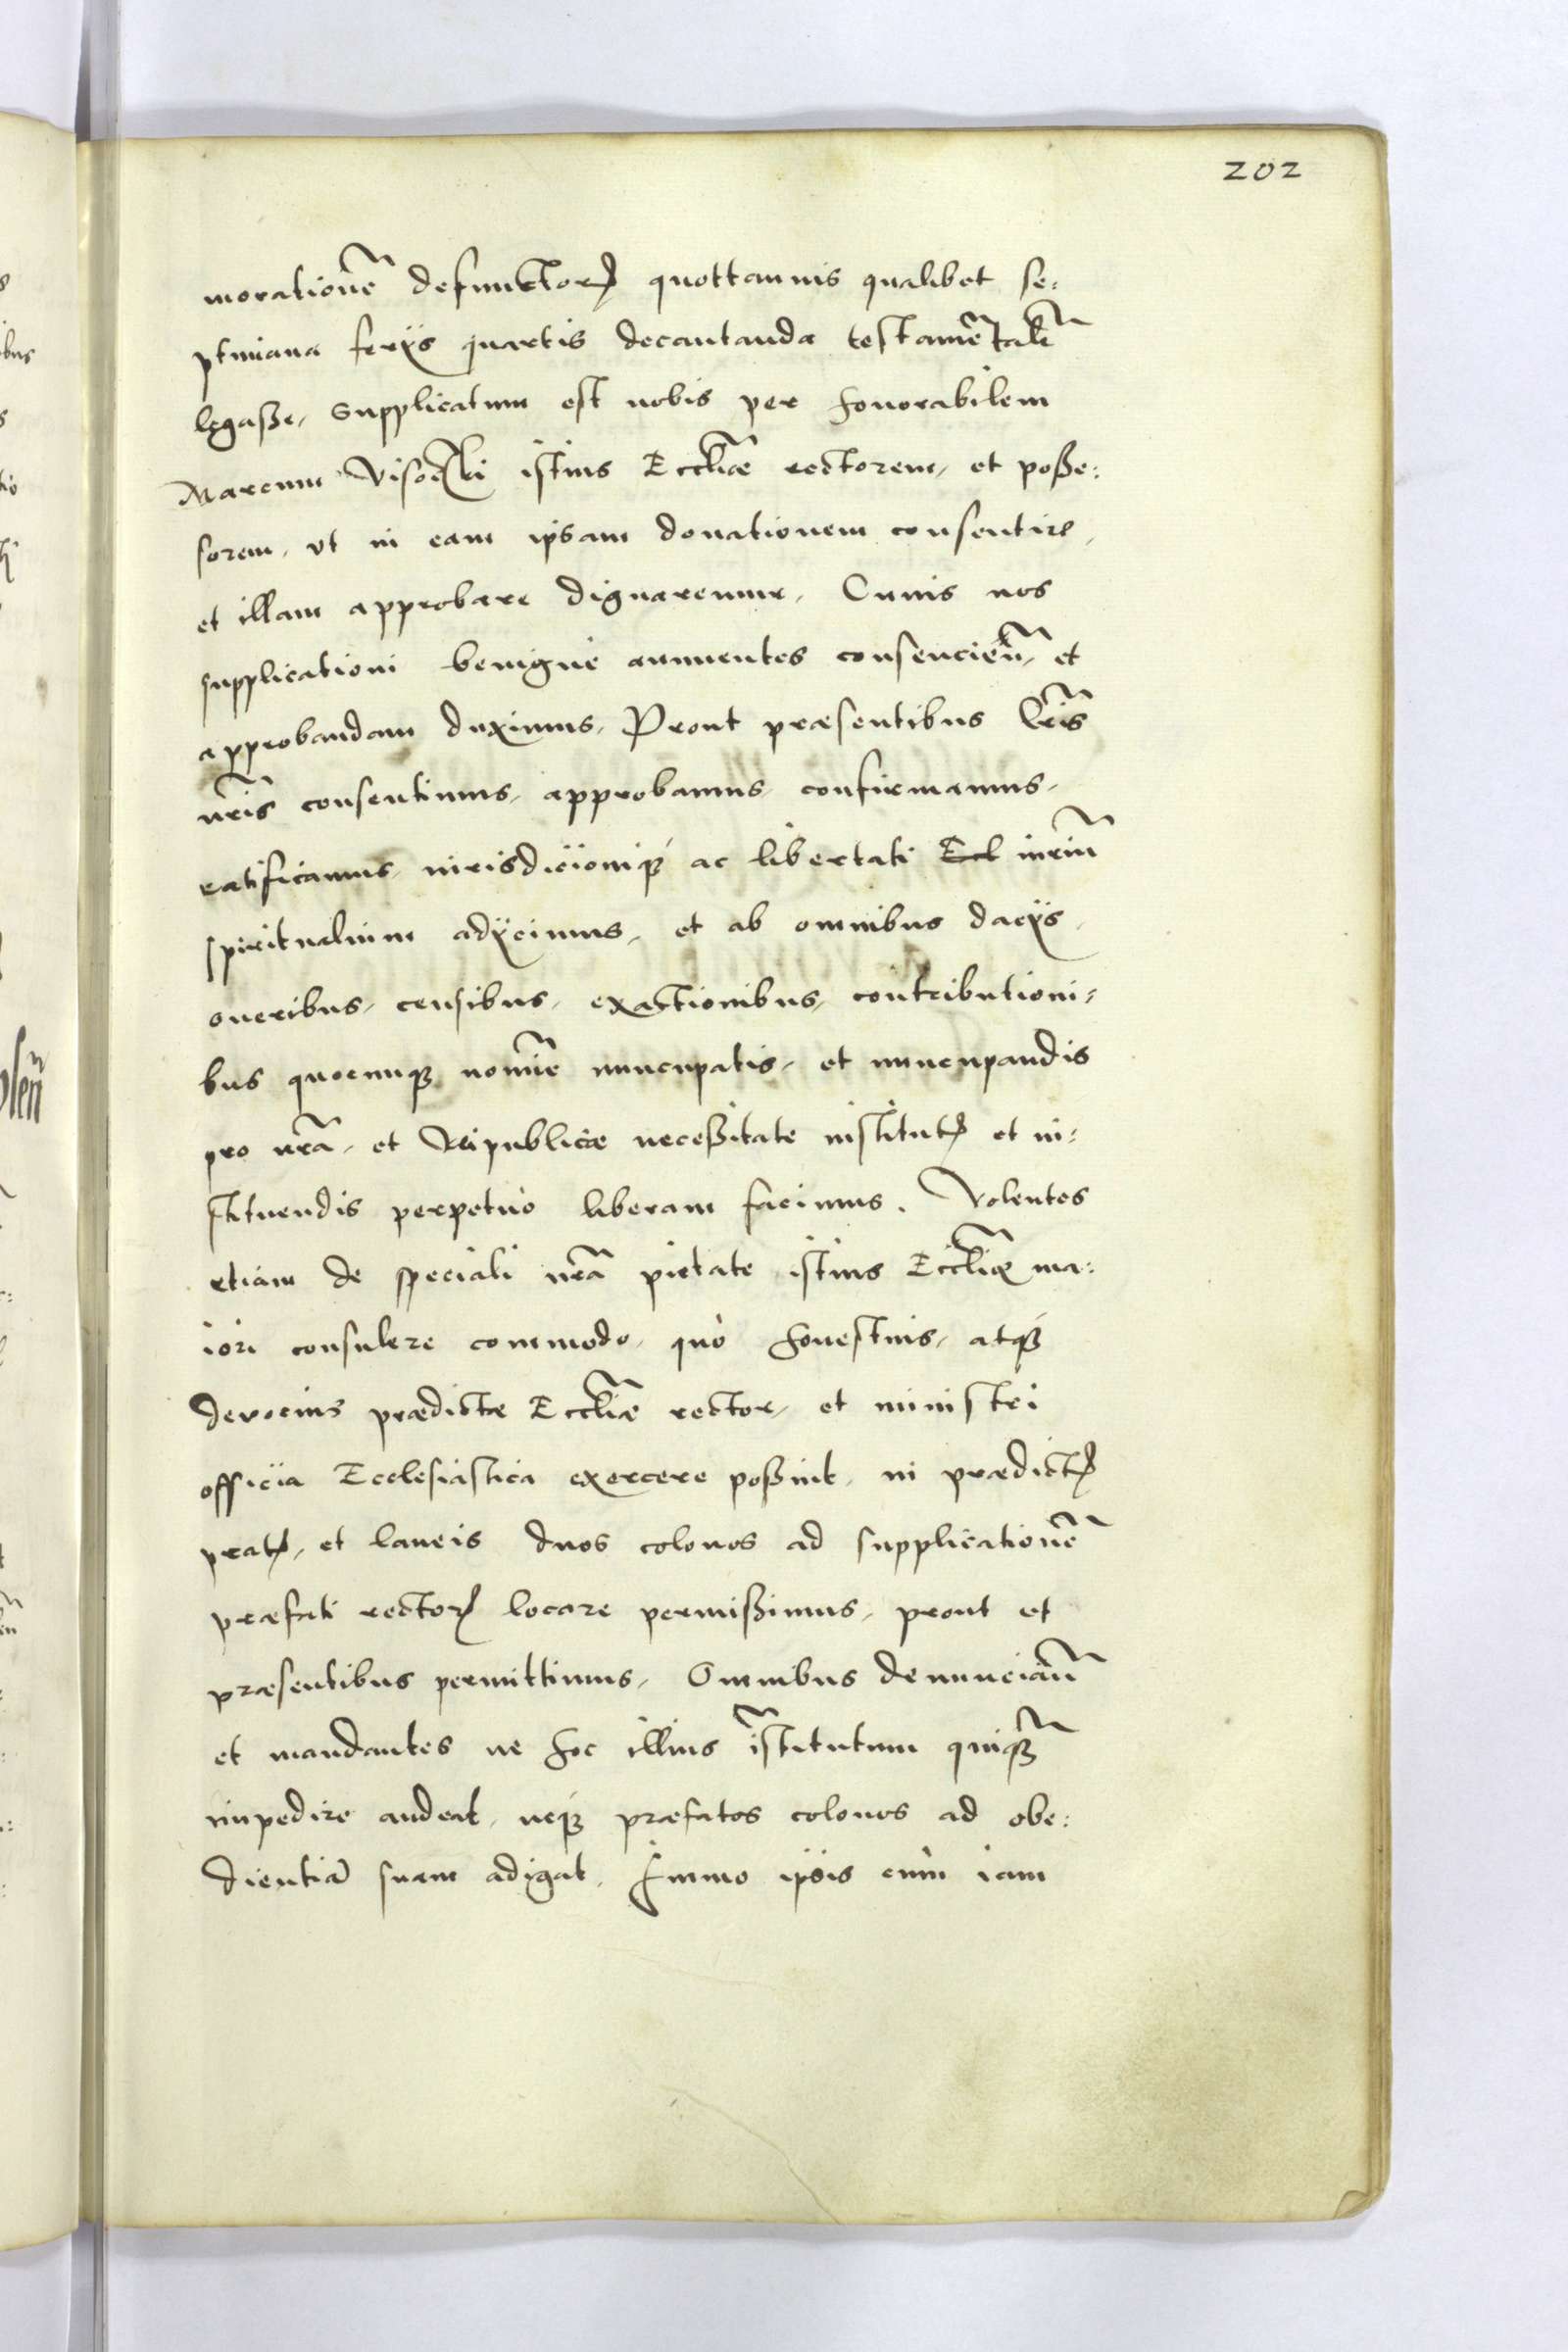 202
moratione͂ defunctorꝝ quottannis qualibet se:
ptimana ferijs quartis decantanda testame͂tal͂r
legasse, Supplicatum est nobis per honorabilem
Marcum Visoczki istius Eccl͂iæ rectorem, et posse:
sorem, vt in eam ipsam donationem consentire,
et illam approbare dignaremur, Cuius nos
supplicationi benigne annuentes consencien͂, et
approbandam duximus, Prout præsentibus lr͂is
nr͂is consentimus, approbamus, confirmamus,
ratificamus, iurisdicioniqꝫ ac libertati Ecl iuriu͂
spiritualium adijcimus, et ab omnibus dacijs,
oneribus, censibus, exactionibus, contributioni:
bus quocunqꝫ nomi͂e nuncupatis, et nuncupandis
pro nr͂a, et Reipublicæ necessitate institutꝭ et in:
stituendis perpetuò liberam facimus. Volentes
etiam de speciali nr͂a pietate istius Eccl͂iæ ma:
iori consulere commodo, quò honestius, atqꝫ
devocius prædictæ Eccl͂iæ rector, et ministri
officia Ecclesiastica exercere possint, in prædictꝭ
pratꝭ, et laneis duos colonos ad supplicatione͂
præfati rectorꝭ locare permissimus, prout et
præsentibus permittimus, Omnibus denuncian͂
et mandantes ne hoc illius i͂stitutum quisqꝫ͂
impedire audeat, neqꝫ præfatos colonos ad obe:
dientia͂ suam adigat, Immo ipsis cum iam